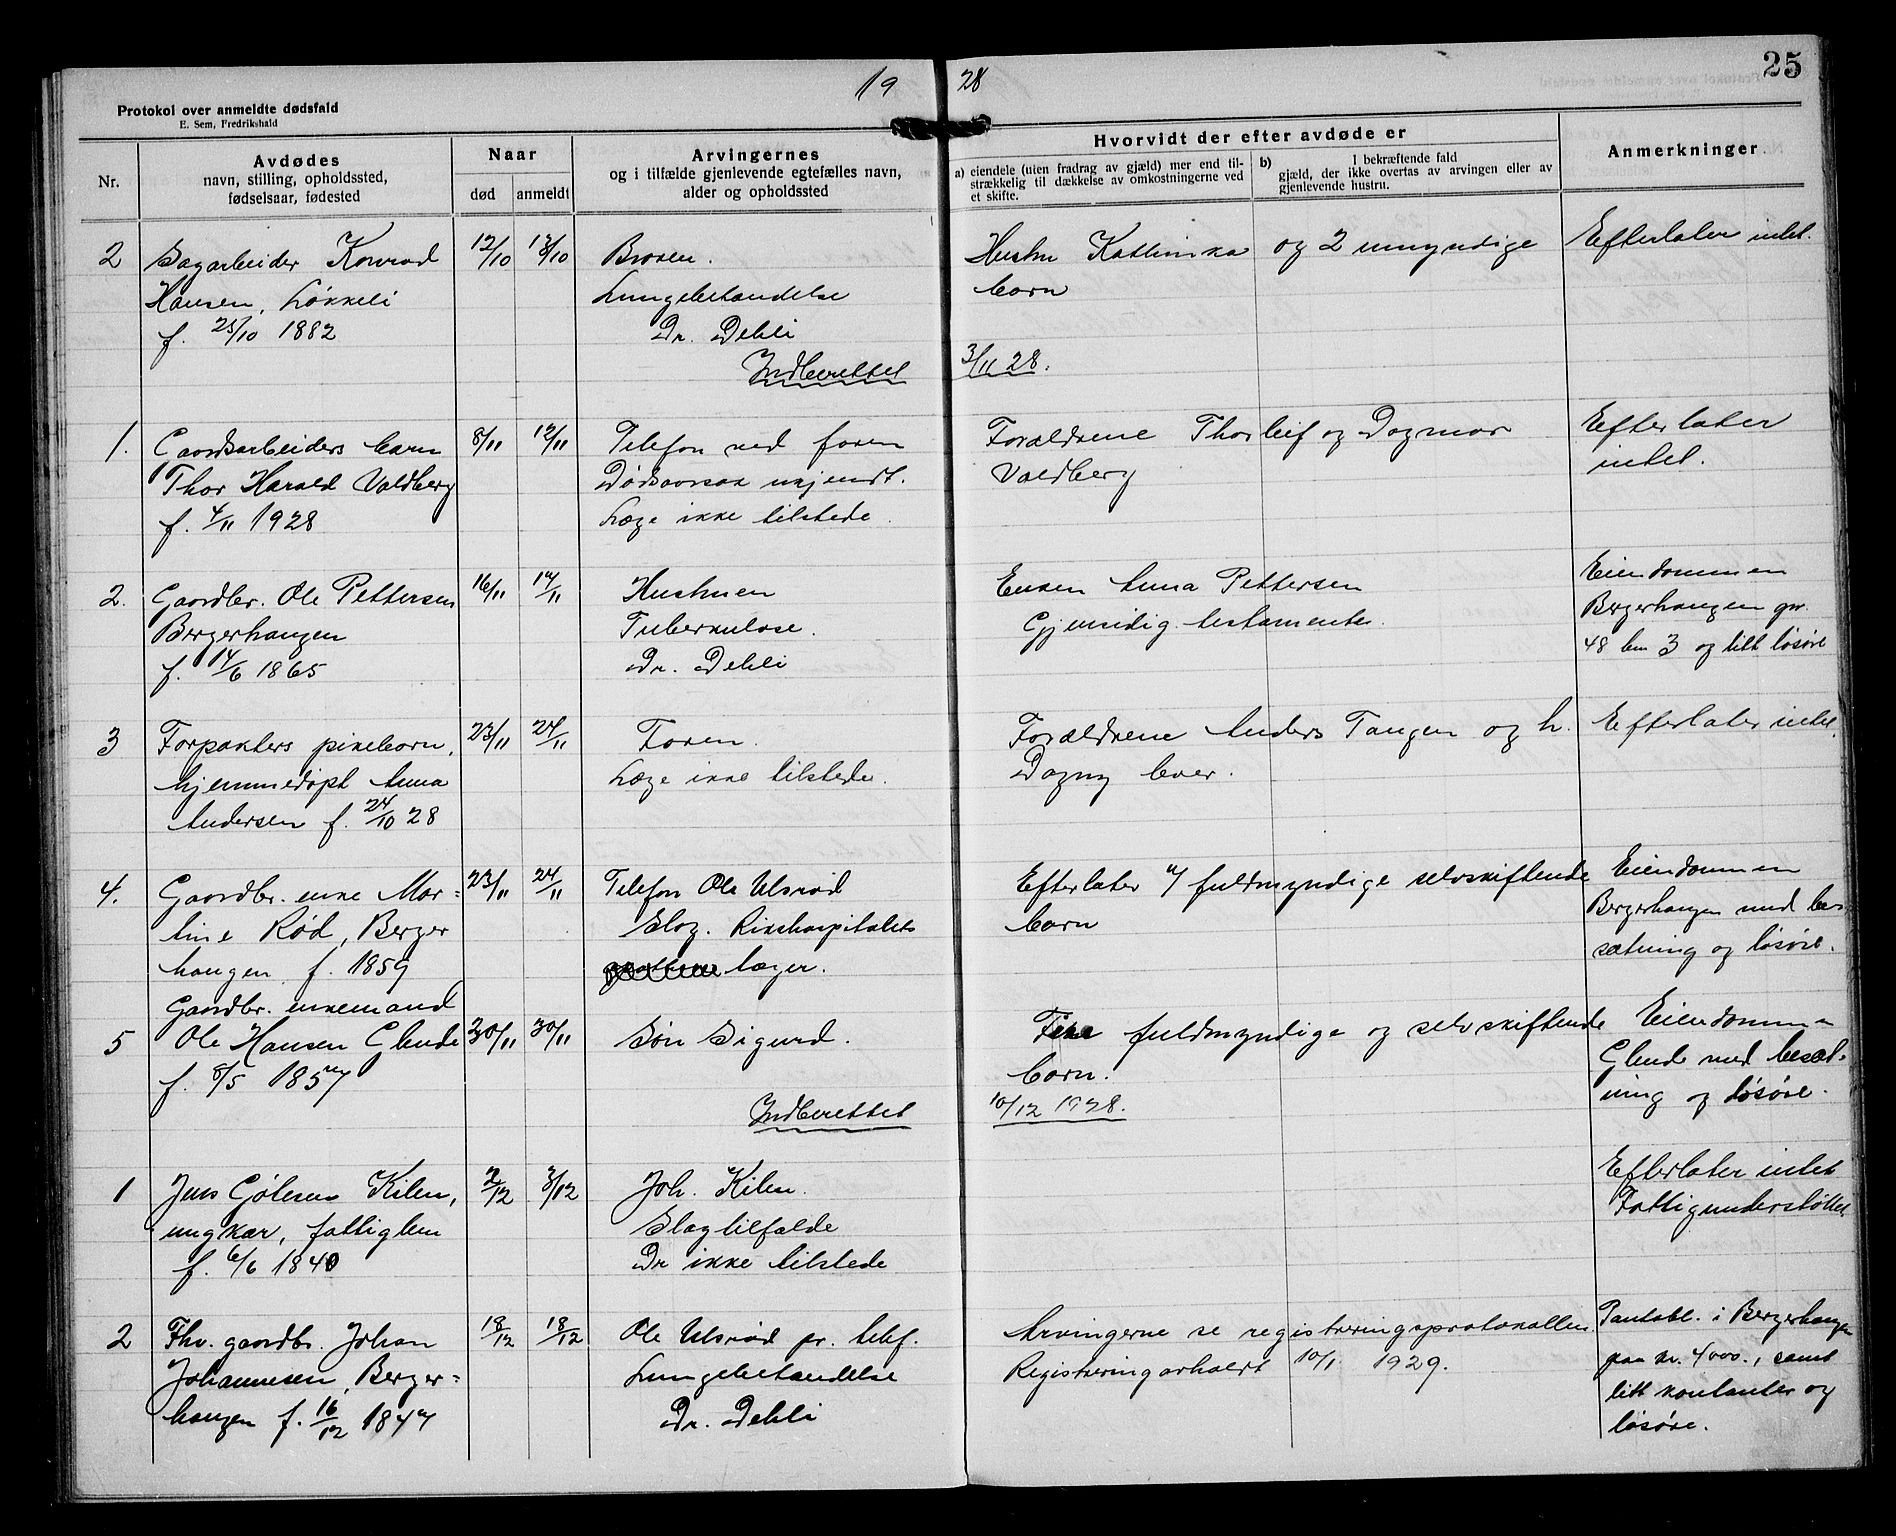 19 28
25
Protokol over anmeldte dødsfald
E. Sem, Fredrikshald
Nr.
Avdødes
navn, stilling, opholdssted,
fødselsaar, fødested
Naar
død
anmeldt
Arvingernes
og i tilfælde gjenlevende egtefælles navn,
alder og opholdssted
Hvorvidt der efter avdøde er
a) eiendele (uten fradrag av gjæld) mer end til-
strækkelig til dækkelse av omkostningerne ved
et skifte.
b) I bekræftende fald
gjæld, der ikke overtas av arvingen eller av
gjenlevende hustru.
Anmerkninger
2 Sagarbeider Konrad
Hansen, Løkkeli
f. 25/10 1882
12/10 13/10
Broren.
Lungebetændelse
Dr. Dehli
Hustru Kathinka og 2 umyndige
barn
Efterlater intet.
Indberettet 3/11 28.
1. Gaardsarbeiders barn
Thor Harald Valdberg
f. 4/11 1928
8/11 12/11
Telefon ved faren
Dødsaarsak ukjendt.
Læge ikke tilstede.
Forældrene Thorleif og Dagmar
Valdberg
Efterlater
intet.
2. Gaardbr. Ole Pettersen
Bergerhaugen
f. 14/6 1865
16/11 17/11
Hustruen
Tuberkulose.
Dr. Dehli
Enken Anna Pettersen
Gjensidig testamente.
Eiendommen
Bergerhaugen gnr.
48 bn 3 og litt løsøre
3 Forpakters pikebarn,
hjemmedøpt Anna
Andersen f. 24/10 28
23/11 24/11
Faren.
Læge ikke tilstede.
Forældrene Anders Tangen og h.
Dagny lever.
Efterlater intet.
4. Gaardbr. enke Mar-
tine Rød, Berger
haugen f. 1859
23/11 24/11
Telefon Ole Ulsrød
Slag. Rikshospitalets
læger.
Efterlater 4 fuldmyndige selvskiftende
barn
Eiendommen
Bergerhaugen med be-
sætning og løsøre.
5 Gaardbr. enkemand
Ole Hansen Glende
f. 8/5 1857
30/11 30/11
Søn Sigurd.
fuldmyndige og selvskiftende
barn.
Eiendommen
Glende med besæt-
ning og løsøre.
Indberettet 10/12 1928.
1 Jens Gølesen Kilen,
ungkar, fattiglem
f. 6/6 1840
2/12 3/12
Joh. Kilen.
Slagtilfælde
Dr ikke tilstede
Efterlater intet
Fattigunderstøttet
2 Fhv. gaardbr. Johan
Johannesen, Berger-
haugen f. 16/12 1847
18/12 18/12
Ole Ulsrød pr. telef.
Lungebetændelse
Dr. Dehli
Arvingerne se registreringsprotokollen.
Registrering avholdt 10/1 1929.
Pantobl. i Bergerhaugen
paa kr. 4000., samt
litt kontanter og
løsøre.